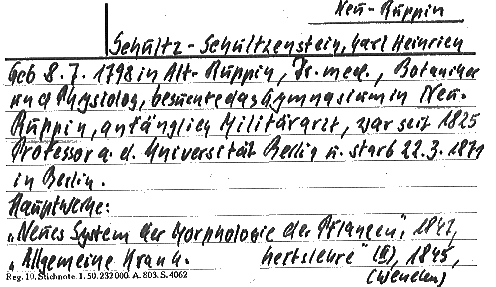 Neu-Ruppin
Schultz-Schultzenstein, Carl Heinrich
Geb 8.7. 1798 in Alt-Ruppin, Dr. med., Botaniker
und Physiolog, besuchte das Gymnasium in Neu-
Ruppin, anfänglich Militärarzt, war seit 1825
Professor a. d. Universität Berlin u. starb 22.3.1871
in Berlin.
Hauptwerke:
„Neues System der Morphologie der Pflanzen", 1847,
„Allgemeine Krank. heitslehre" (II), 1845,
Reg. 10. Stichnote. 1. 50. 232000. A. 803. S. 4062